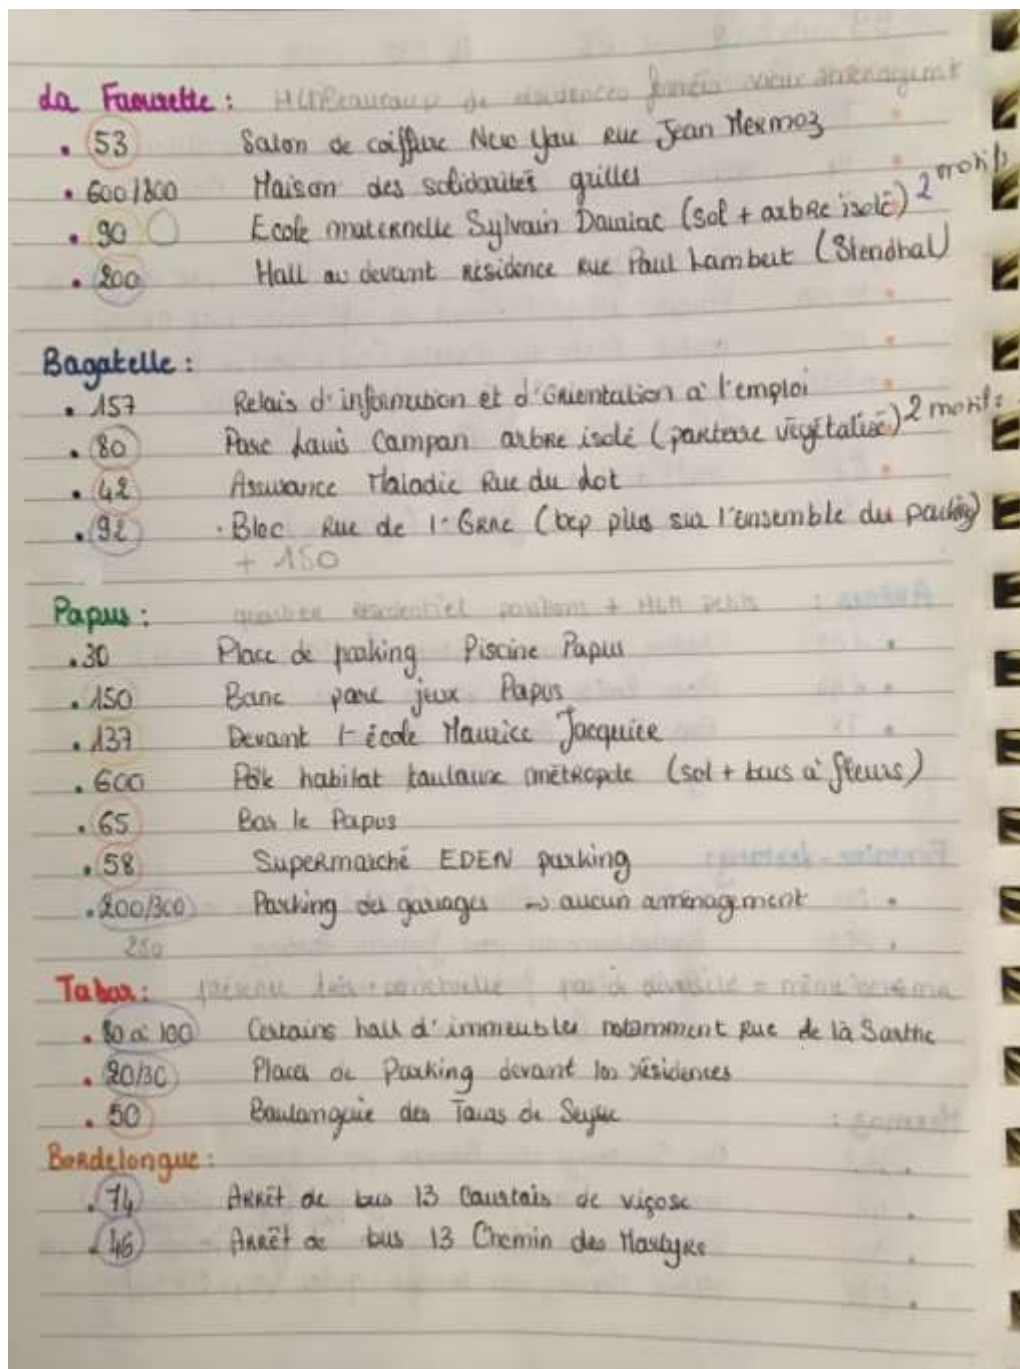 La Faourette : HLM Beaucoup de résidences fermées vieux aménagemt
• 53 Salon de coiffure New You Rue Jean Mermoz
• 600/800 Maison des solidarités grilles
• 90 Ecole maternelle Sylvain Dauriac (sol + arbre isolé) 2 motifs
• 200 Hall au devant résidence rue Paul Lambert (Stendhal)
Bagatelle :
• 157 Relais d'information et d'orientation à l'emploi
• 80 Parc Louis Campan arbre isolé (parterre végétalisé) 2 motifs
• 42 Assurance Maladie Rue du Lot
• 92 • Bloc Rue de l'Orne (bcp plus sur l'ensemble du parking)
+ 150
Papus : quartier résidentiel pavillons + HLM petits
• 30 Place de parking Piscine Papus
• 150 Banc parc jeux Papus
• 137 Devant l'école Maurice Jacquier
• 600 Pôle habitat toulouse métropole (sol + bacs à fleurs)
• 65 Bar le Papus
• 58 Supermarché EDEN parking
• 200/300 Parking des garages → aucun aménagement
250
Tabar : présence très + ponctuelle pas de diversité = même
• 80 à 100 Certains hall d'immeubles notamment Rue de la Sarthe
• 20/30 Places de Parking devant les résidences
• 50 Boulangerie des Tours de Seysse
Bordelongue :
• 74 Arrêt de bus 13 Courtois de viçose
• 46 - Arrêt de bus 13 Chemin des Martyrs